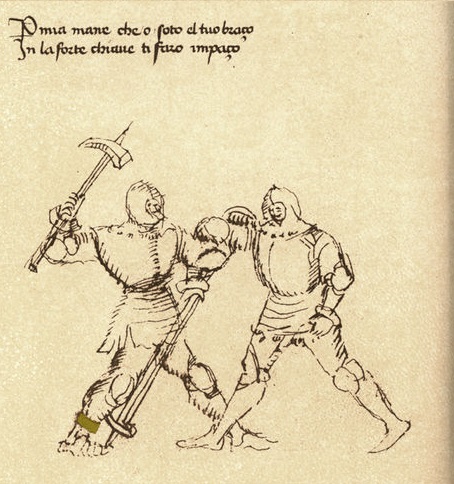 P mia mane che o soto el tuo braço
In la forte chiave ti faro impaço